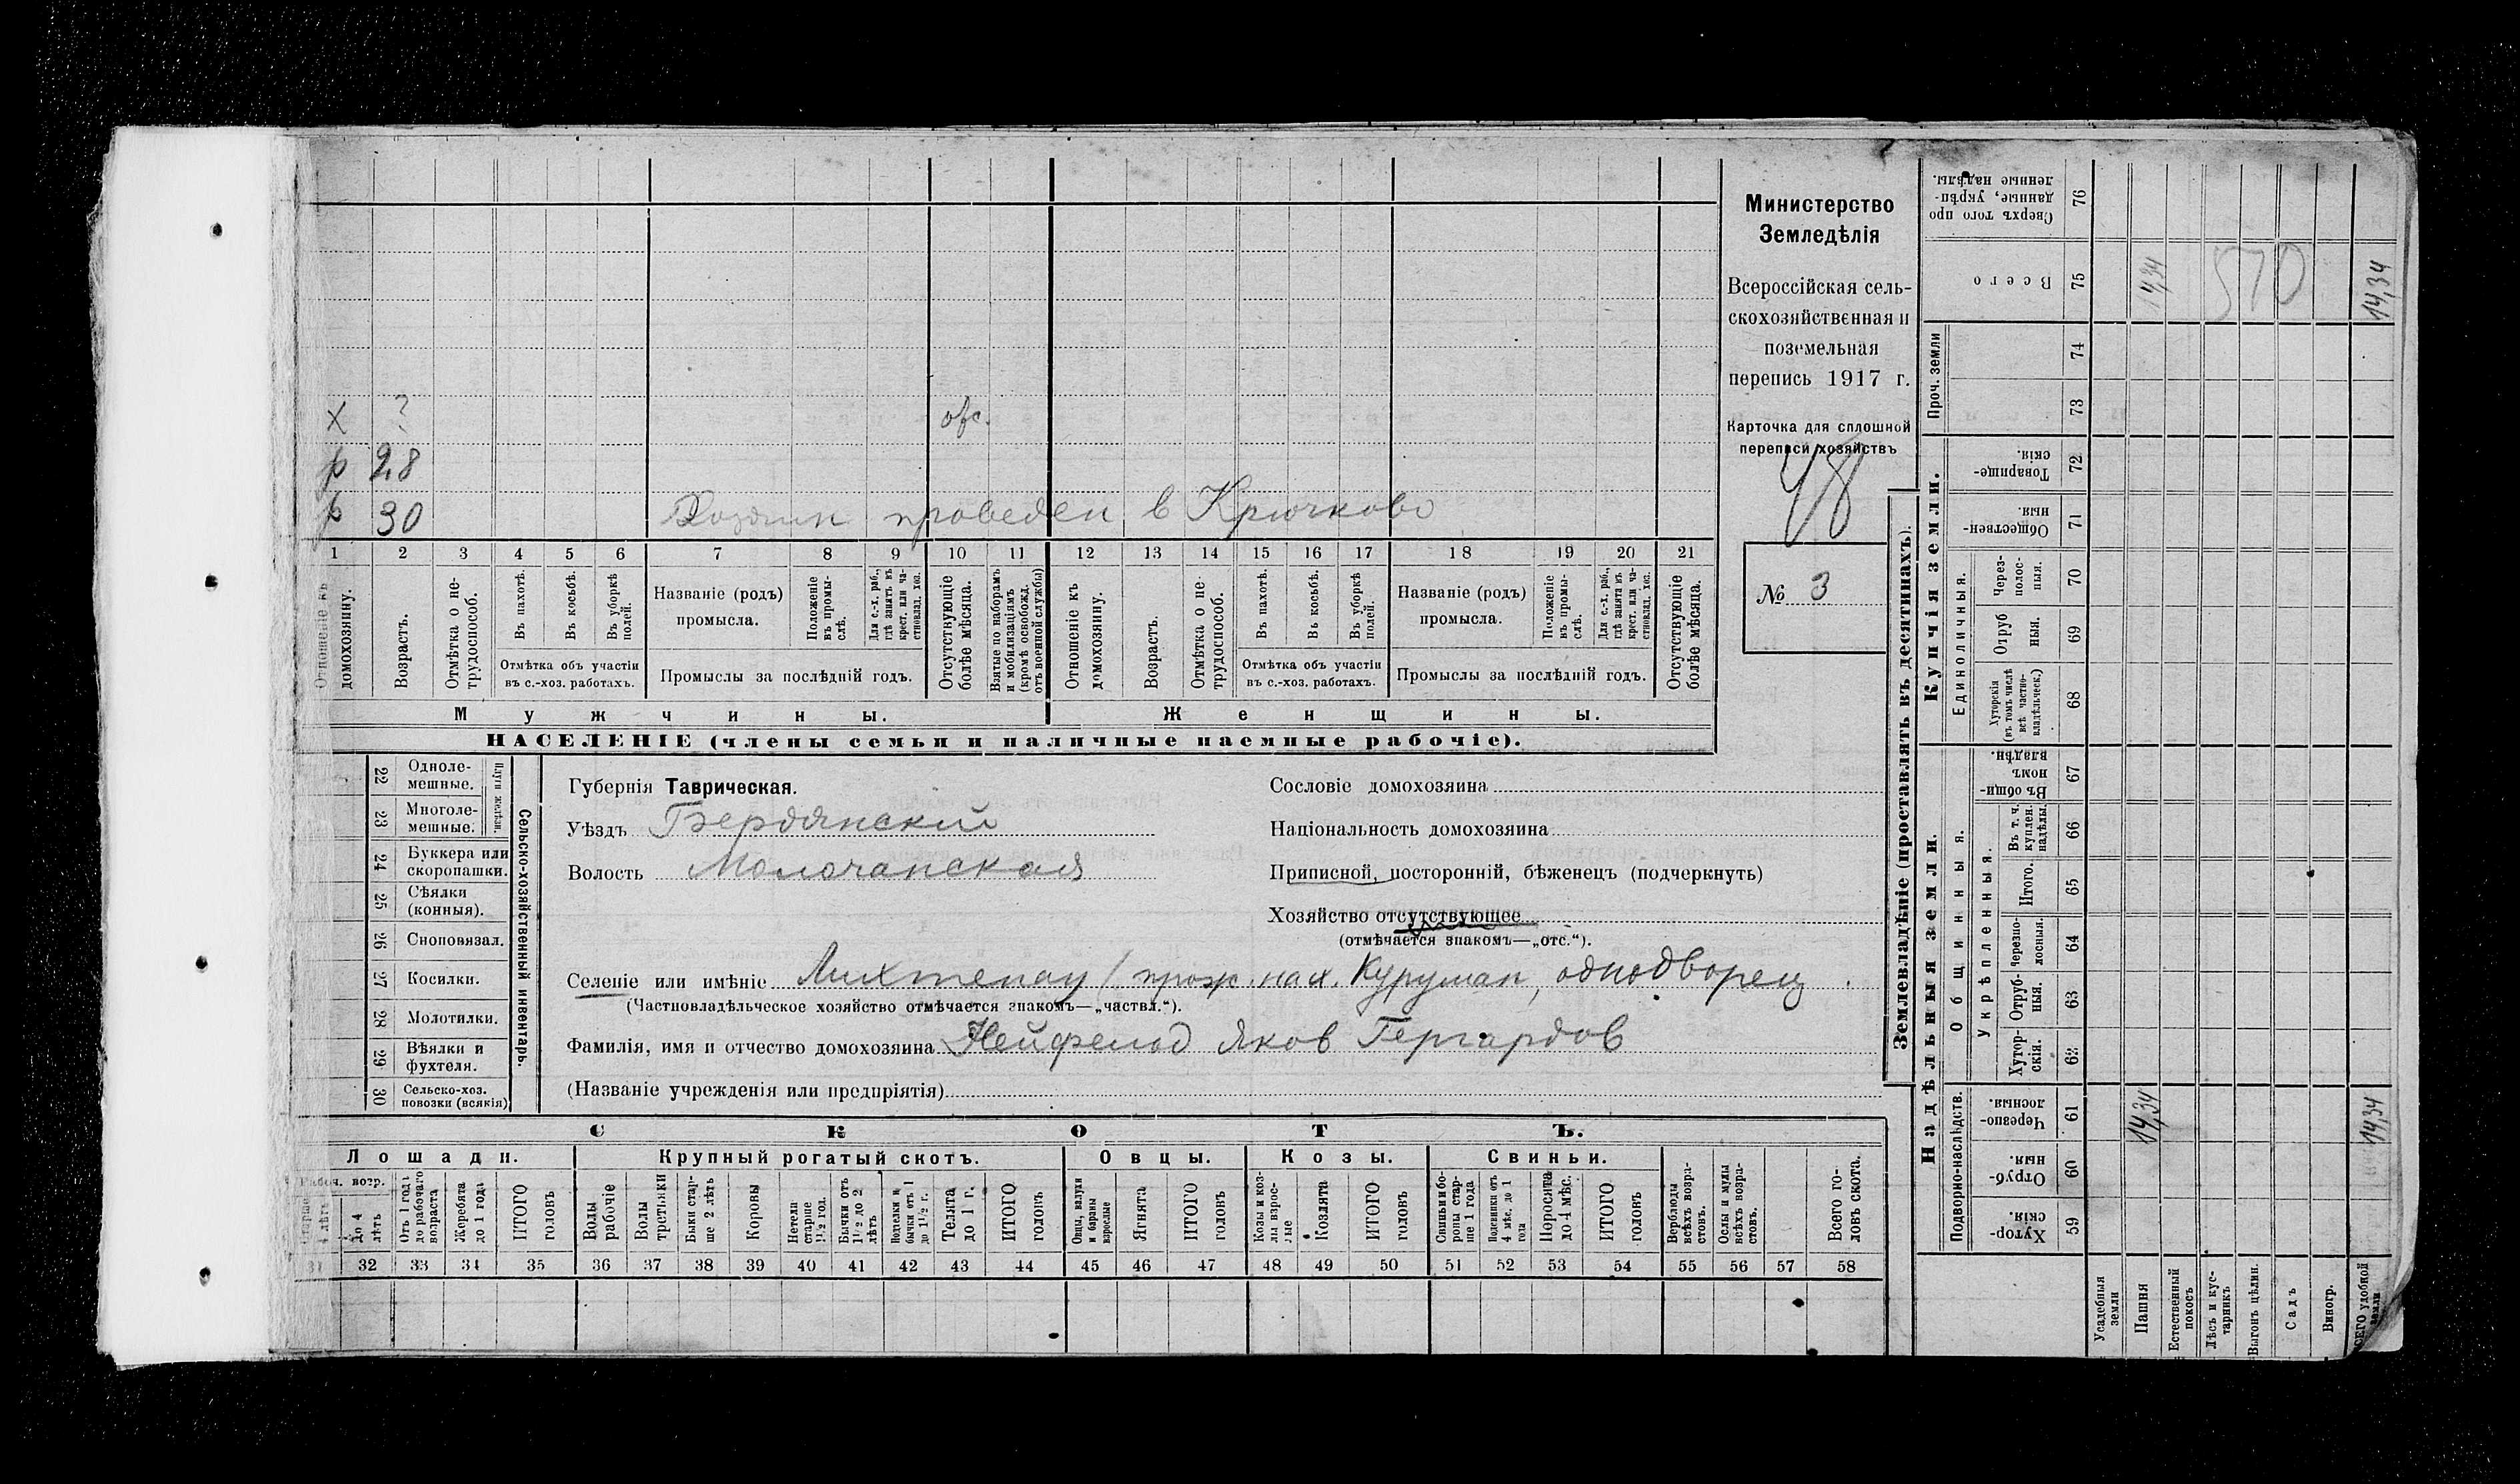 Министерство
Земледѣлія
Всероссійская сель-
скохозяйственная и
поземельная
перепись 1917 г.
Карточка для сплошной
переписи хозяйствъ
48
№ 3
х ? отс.
р 28
р 30 проведен в Крючково
1 2 3 4 5 6 7 8 9 10 11 12 13 14 15 16 17 18 19 20 21
Отношеніе къ домохозяину.
Возрастъ.
Отмѣтка о не-трудоспособ.
Въ пахотѣ.
Въ косьбѣ.
Въ уборкѣ полей.
Отмѣтка объ участіи
въ с.-хоз. работахъ.
Названіе (родъ)
промысла.
Положеніе въ промы-слѣ.
Для с.-х. раб., гдѣ занятъ въ крест. или ча-стновлад. хоз.
Промыслы за послѣдній годъ.
Отсутствующіе болѣе мѣсяца.
Взятые по наборамъ и мобилизаціямъ (кромѣ освобожд. отъ военной службы)
Отношеніе къ домохозяину.
Возрастъ.
Отмѣтка о не-трудоспособ.
Въ пахотѣ.
Въ косьбѣ.
Въ уборкѣ полей.
Отмѣтка объ участіи
въ с.-хоз. работахъ.
Названіе (родъ)
промысла.
Положеніе въ промы-слѣ.
Для с.-х. раб., гдѣ занята въ крест. или ча-стновлад. хоз.
Промыслы за послѣдній годъ.
Отсутствующіе болѣе мѣсяца.
Мужчины. Женщины.
НАСЕЛЕНІЕ (члены семьи и наличные наемные рабочіе).
22 Одноле-мешные.
23 Многоле-мешные.
Плуги желѣзн.
24 Буккера или скоропашки.
25 Сѣялки (конныя).
26 Сноповязал.
27 Косилки.
28 Молотилки.
29 Вѣялки и фухтеля.
30 Сельско-хоз. повозки (всякія)
Сельско-хозяйственный инвентарь.
Губернія Таврическая.
Уѣздъ Бердянский
Волость Молочанская
Сословіе домохозяина
Національность домохозяина
Приписной, посторонній, бѣженецъ (подчеркнуть)
Хозяйство отсутствующее
(отмѣчается знакомъ—„отс.“).
Селеніе или имѣніе Лихтенау (прож. на х. Курушан, однодворец
(Частновладѣльческое хозяйство отмѣчается знакомъ—„частвл.“).
Фамилія, имя и отчество домохозяина Нейфельд Яков Гергардов
(Названіе учрежденія или предпріятія)
СКОТЪ.
Лошади. Крупный рогатый скотъ. Овцы. Козы. Свиньи.
Рабоч. возр.
Старше 4 лѣтъ
до 4 лѣтъ
Отъ 1 года до рабочаго возраста
Жеребята до 1 года
ИТОГО головъ
Волы рабочіе
Волы третьяки
Быки стар-ше 2 лѣтъ
Коровы
Нетели старше 1½ год.
Бычки отъ 1½ до 2 лѣтъ
Нетелки и бычки отъ 1 до 1½ г.
Телята до 1 г.
ИТОГО головъ
Овцы, валухи и бараны взрослые
Ягнята
ИТОГО головъ
Козы и коз-лы взрос-лые
Козлята
ИТОГО головъ
Свиньи и бо-ровы стар-ше 1 года
Подсвинки отъ 4 мѣс. до 1 года
Поросята до 4 мѣс.
ИТОГО головъ
Верблюды всѣхъ возра-стовъ.
Ослы и мулы всѣхъ возра-стовъ.
Всего го-ловъ скота.
31 32 33 34 35 36 37 38 39 40 41 42 43 44 45 46 47 48 49 50 51 52 53 54 55 56 57 58
Землевладѣніе (проставлять въ десятинахъ).
Надѣльныя земли. Купчія земли. Проч. земли
Подворно-наслѣдств.
Общинныя.
Укрѣпленныя.
Единоличныя.
Сверхъ того про данные, укрѣп-ленные надѣлы. 76
Всего 75 14,34 570 14,34
74
73
Товарище-скія. 72
Обществен-ныя. 71
Через-полос-ныя. 70
Отруб ныя. 69
Хуторскія (въ томъ числѣ всѣ частно-владѣльческ.) 68
Въ общи-номъ владѣн. 67
Въ т. ч. куплен. надѣлы. 66
Итого. 65
Черезпо-лосныя. 64
Отруб-ныя. 63
Хутор-скія. 62
Черезпо-лосныя. 61 14,34 14,34
Отруб-ныя. 60
Хутор-скія. 59
Усадебныя земли
Пашня
Естественный покосъ
Лѣсъ и кус-тарникъ
Выгонъ цѣлин.
Садъ
Виногр.
ВСЕГО удобной земли